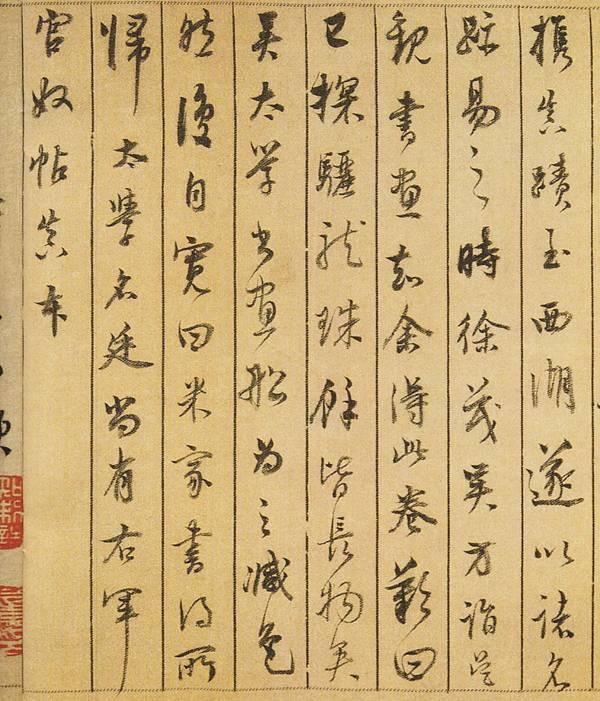 攜真蹟至西湖遂以諸名
跡易之時徐茂吳方詣吳
觀書畫知余得此卷歎曰
已探驪龍珠餘皆長物矣
吳太學書畫船為之減色
然後自寬曰米家書得所
歸太學名廷尚有右軍
官奴帖真本